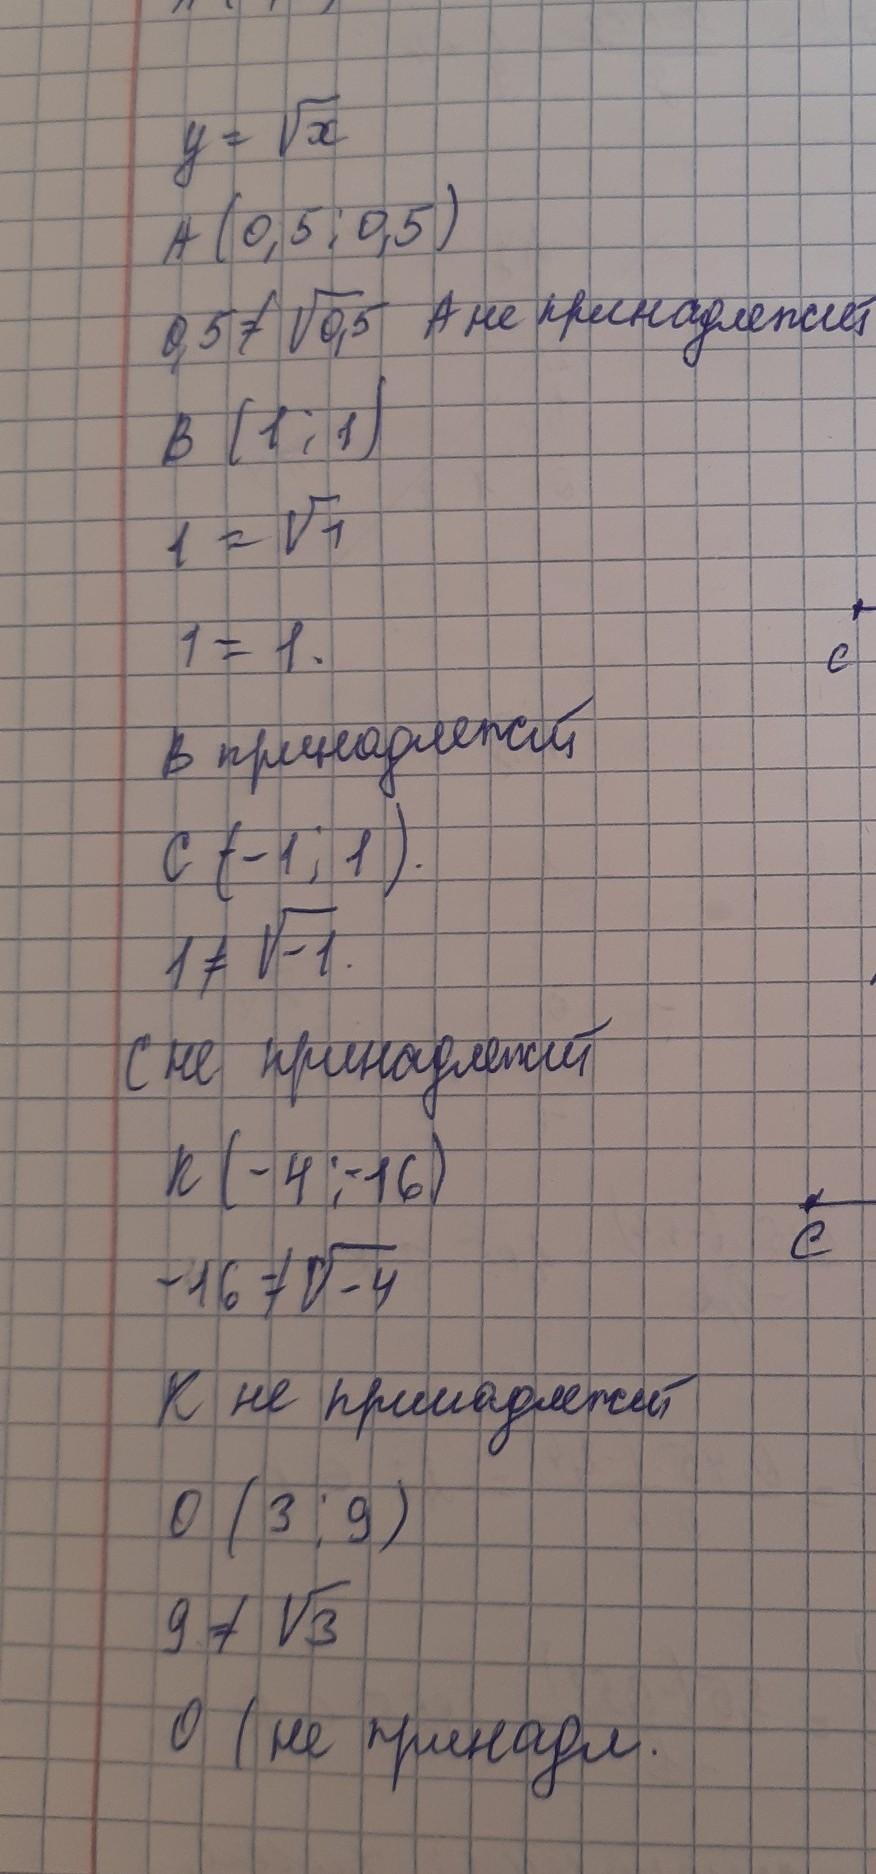 y = √x
A (0,5 ; 0,5)
0,5 ≠ √0,5 A не принадлежит
B (1 ; 1)
1 = √1
1 = 1.
C
B принадлежит
C (-1 ; 1).
1 ≠ √-1.
C не принадлежит
K (-4 ; -16)
C
-16 ≠ √-4
K не принадлежит
O (3 ; 9)
9 ≠ √3
O ( не принадл.